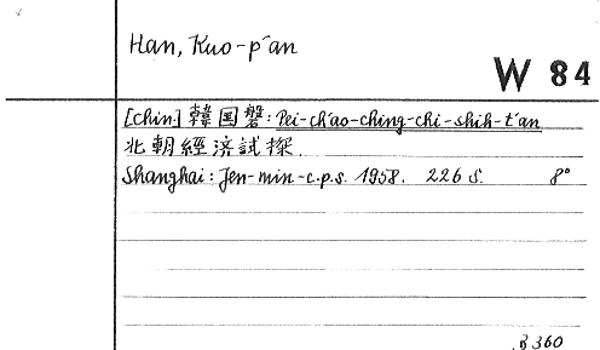 Han, Kuo-p'an
W 84
[Chin] 韓国磐: Pei-ch'ao-ching-chi-shih-t'an
北朝經济試探.
Shanghai: Jen-min-c.p.s. 1958. 226 S. 8°
B 360